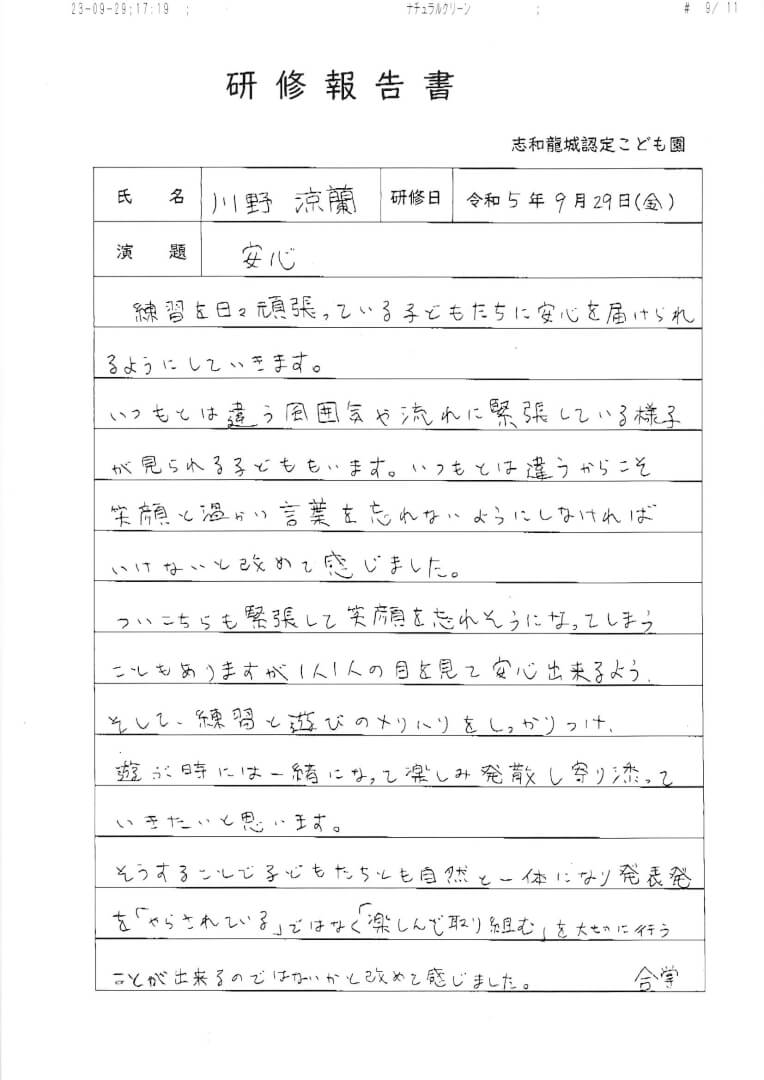 23-09-29;17:19 ; ナチュラルクリーン ; # 9/ 11
研修報告書
志和龍城認定こども園
氏 名 川野 涼蘭 研修日 令和5年9月29日(金)
演 題 安心
練習を日々頑張っている子どもたちに安心を届けられ
るようにしていきます。
いつもとは違う雰囲気や流れに緊張している様子
が見られる子どももいます。いつもとは違うからこそ
笑顔と温かい言葉を忘れないようにしなければ
いけないと改めて感じました。
ついこちらも緊張して笑顔を忘れそうになってしまう
こともありますが1人1人の目を見て安心出来るよう、
そして、練習と遊びのメリハリをしっかりつけ、
遊ぶ時には一緒になって楽しみ発散し寄り添って
いきたいと思います。
そうすることで子どもたちとも自然と一体になり発表発
を「やらされている」ではなく「楽しんで取り組む」を大切に行う
ことが出来るのではないかと改めて感じました。 合掌